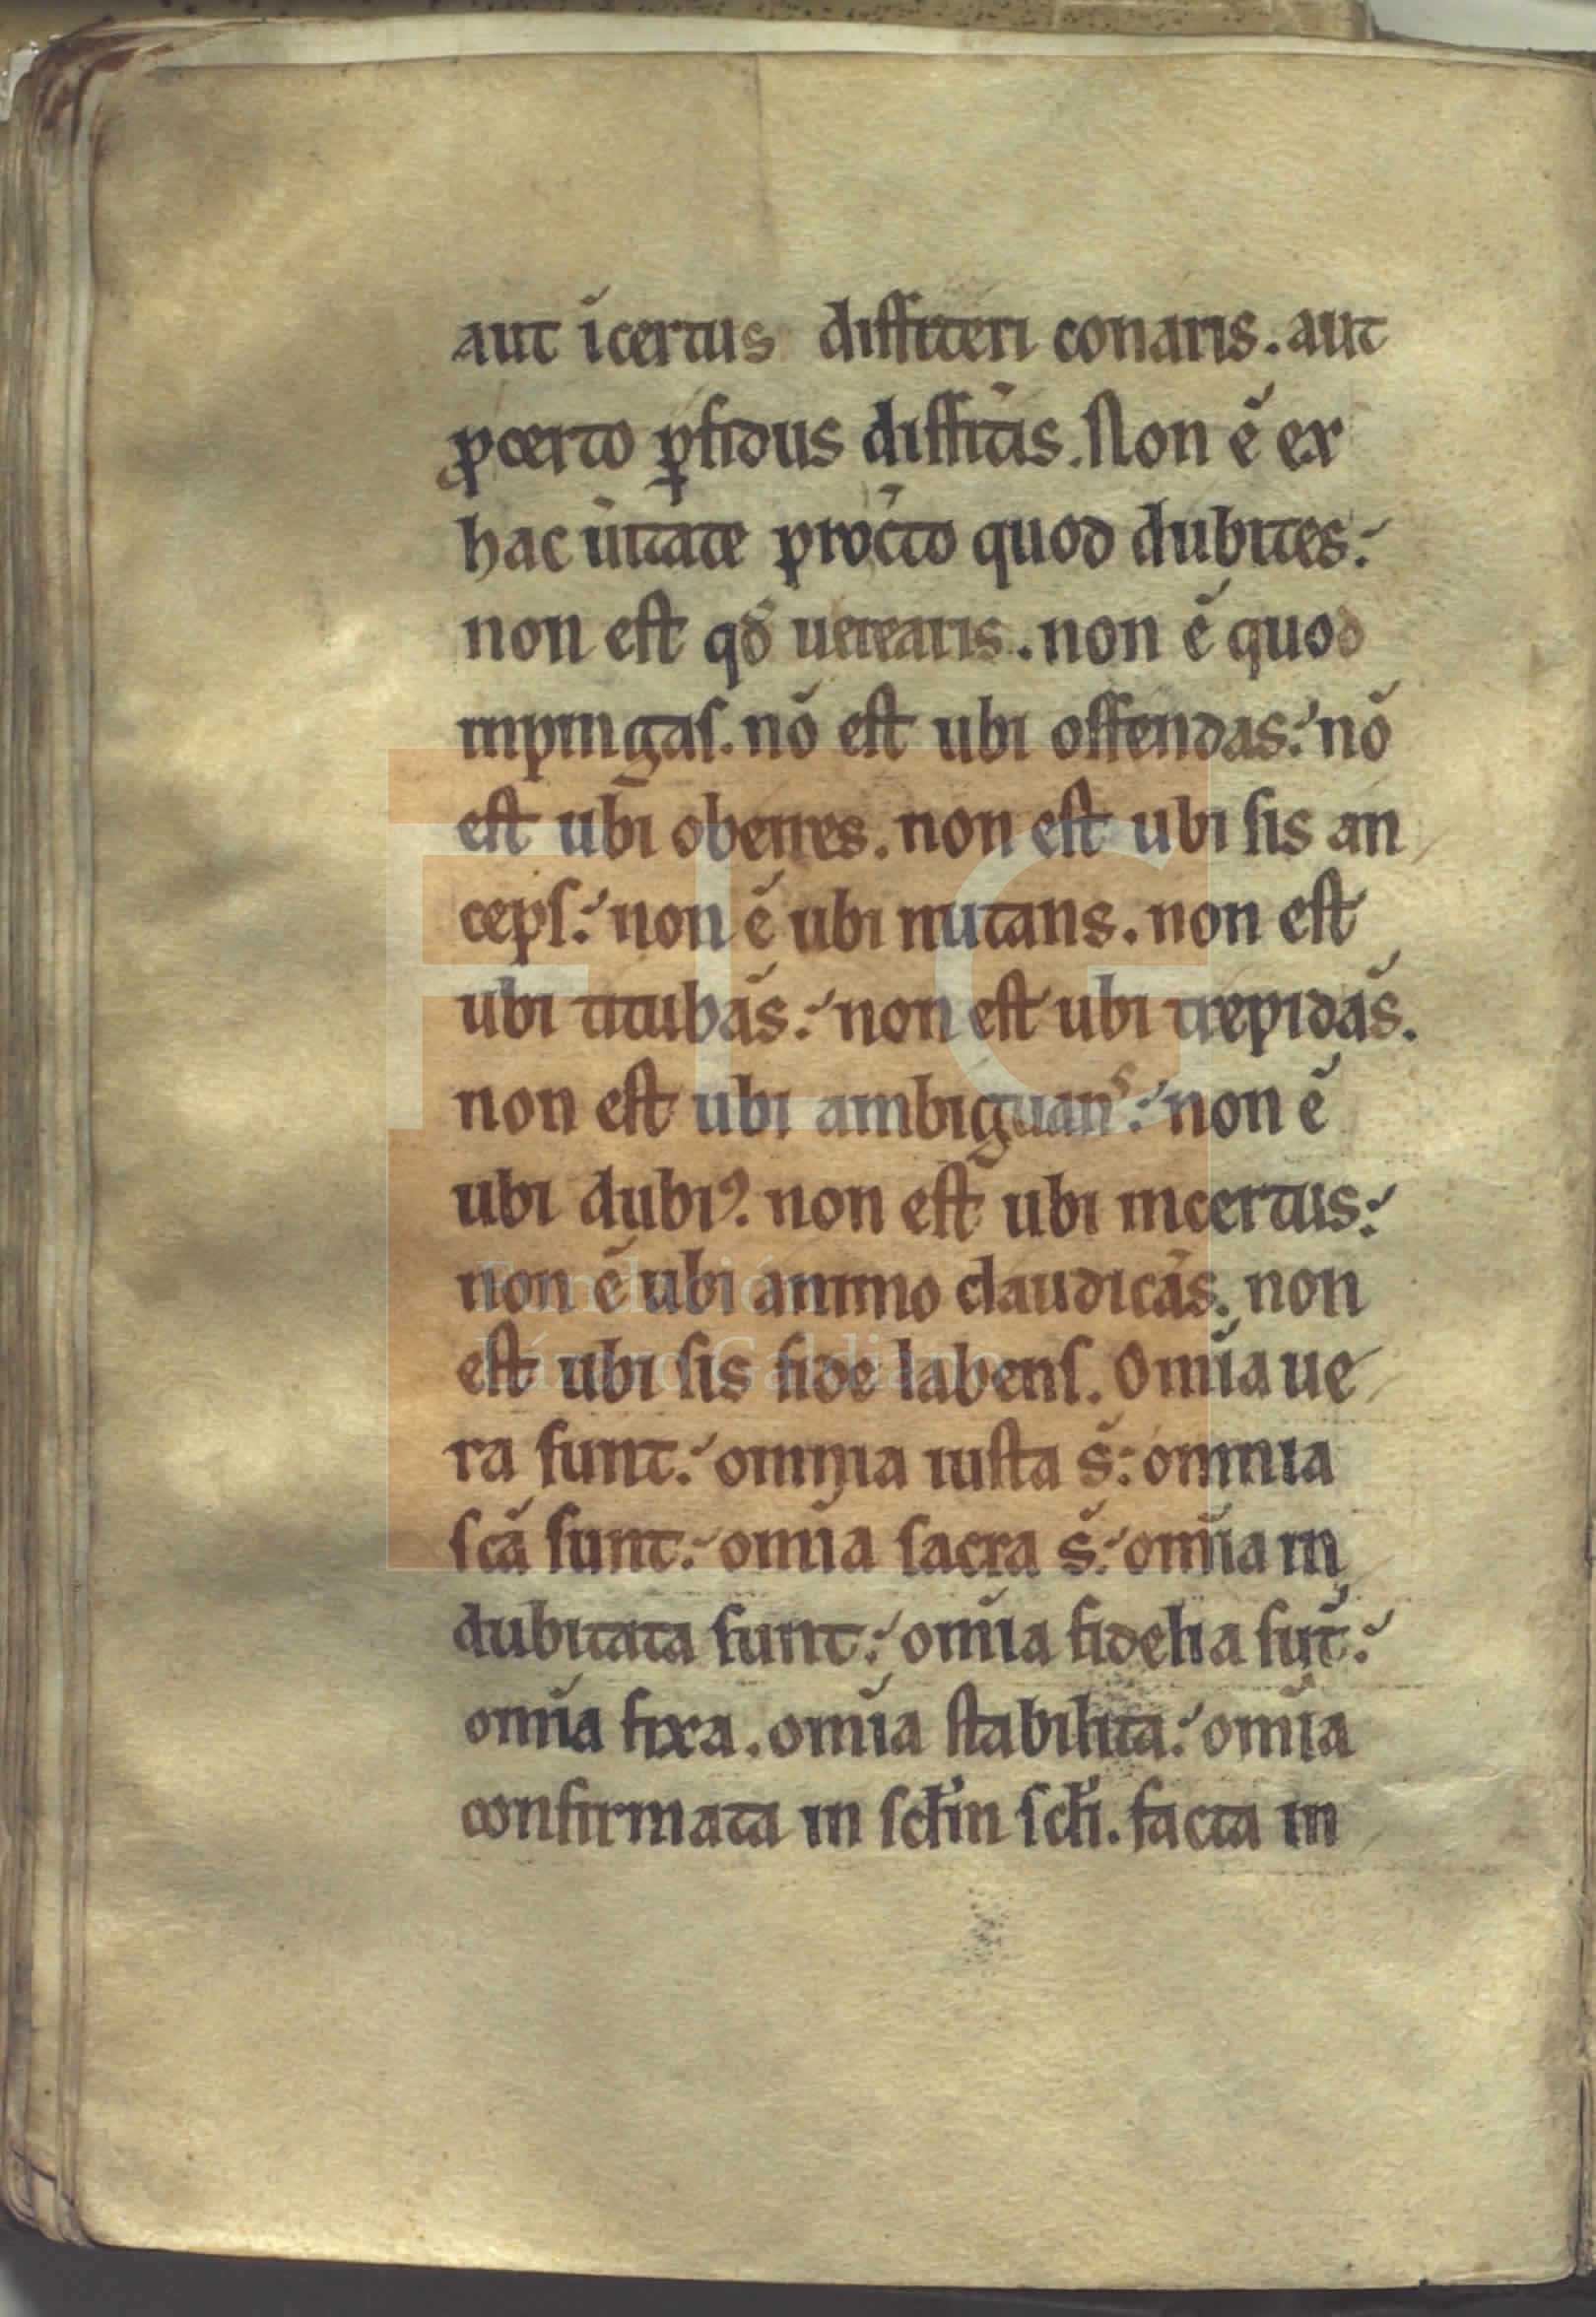 aut ı̄certus diffiteri conaris. aut
ꝓcerto ꝑfidus diffit̄is. Non ē ex
hac ūitate procͥto quod dubites:
non est qđ uerearis. non ē quod
inpingas. nō est ubi offendas: nō
est ubi oberres. non est ubi sis an
ceps: non ē ubi nutans. non est
ubi titubās: non est ubi trepidās.
non est ubi ambiguanˢ: non ē
ubi dubiꝰ. non est ubi incertus:
non ē ubi animo claudicās. non
est ubi sis fide labens. Omīa ue
ra sunt: omnia iusta s̄: omnia
scā sunt: omīa sacra s̄: omīa in
dubitata sunt: omīa fidelia sūt:
omīa fixa. omīa stabilita: omīa
confirmata in scľın scľı. facta in